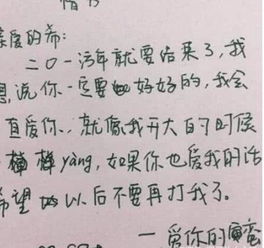 情书
亲爱的希:
二0一六年就要结束了,我
想说你一定要好好的,我会
一直爱你..就像我开大的时候
横横yàng,如果你也爱我的话
希望以后不要再打我了。
一爱你的